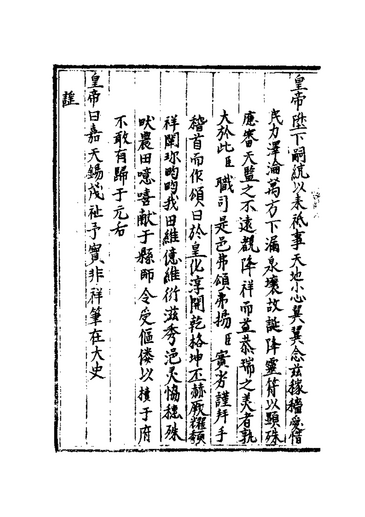 皇帝陛下嗣統以来祗事天地小心翼翼念茲稼穡受倍
民力澤淪萬方下漏泉壤故誕降靈符以顯殊
應審天監之不遠觀降祥而益恭瑞之美者孰
大於此臣職司是邑弗頌弗揚臣實劣謹拜手
稽首而作頌曰於皇化淳開乾格坤丕赫厥耀頻
祥闡珎畇畇我田維億維衍滋秀浥灵恊穟殊
吠農田噫嘻献于縣師令受傴偻以擯于府
不敢有歸于元右
皇帝曰嘉天錫茂祉予實非祥筆在大史
誰